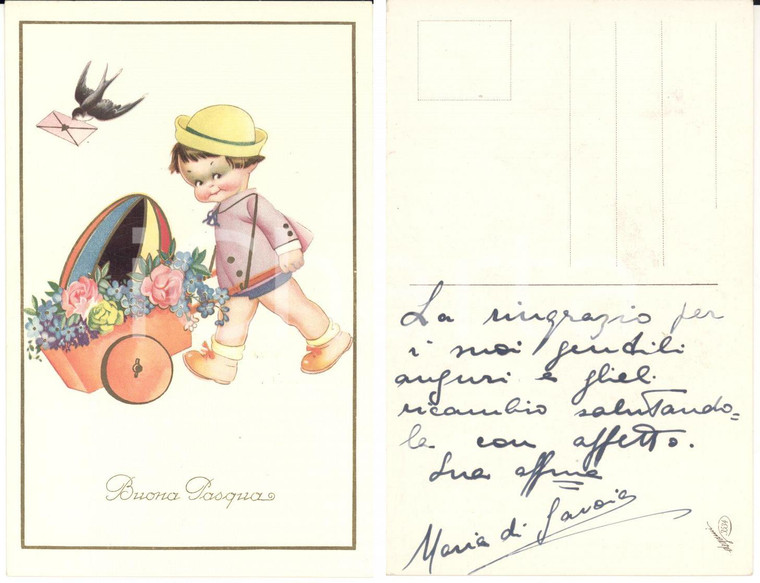 Buona Pasqua
La ringrazio per
i suoi gentili
auguri e glieli
ricambio salutando=
la con affetto.
Sua affma
Maria di Savoia